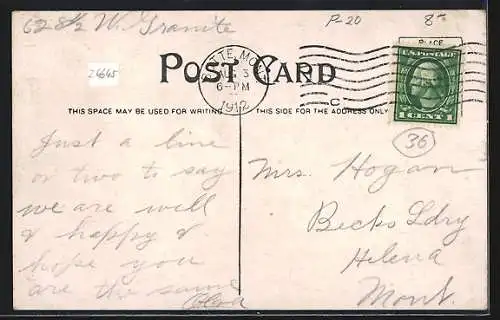 628½ W. Granite
P-20
8-
24645
POST CARD
BUTTE, MONT.
AUG 3
6-PM
1912
C
PLACE
U.S. POSTAGE
1 CENT 1
THIS SPACE MAY BE USED FOR WRITING
THIS SIDE FOR THE ADDRESS ONLY
36
Just a line
or two to say
we are well
& happy &
hope you
are the same
Mrs. Hogan
Becks Ldry
Helena
Mont.